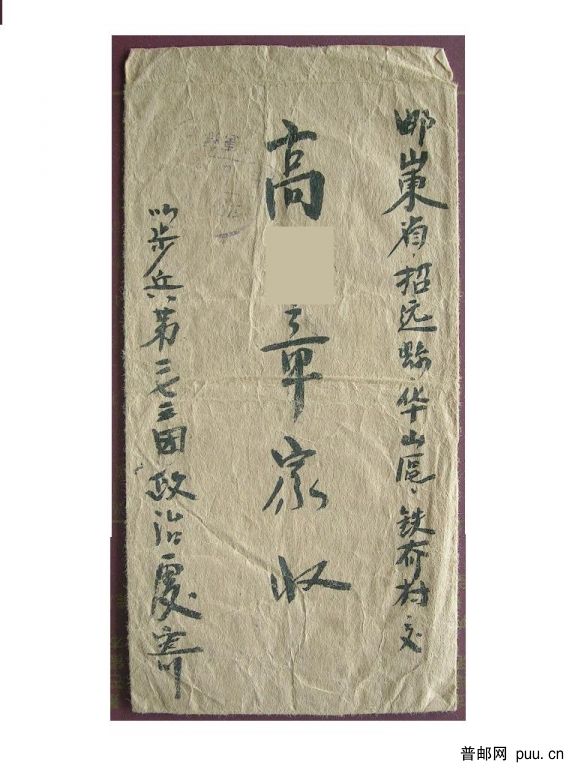 邮山東省·招远縣·华山區·铁夼村交
高章家收
以步兵第二七二团政治處寄
普邮网 puu.cn